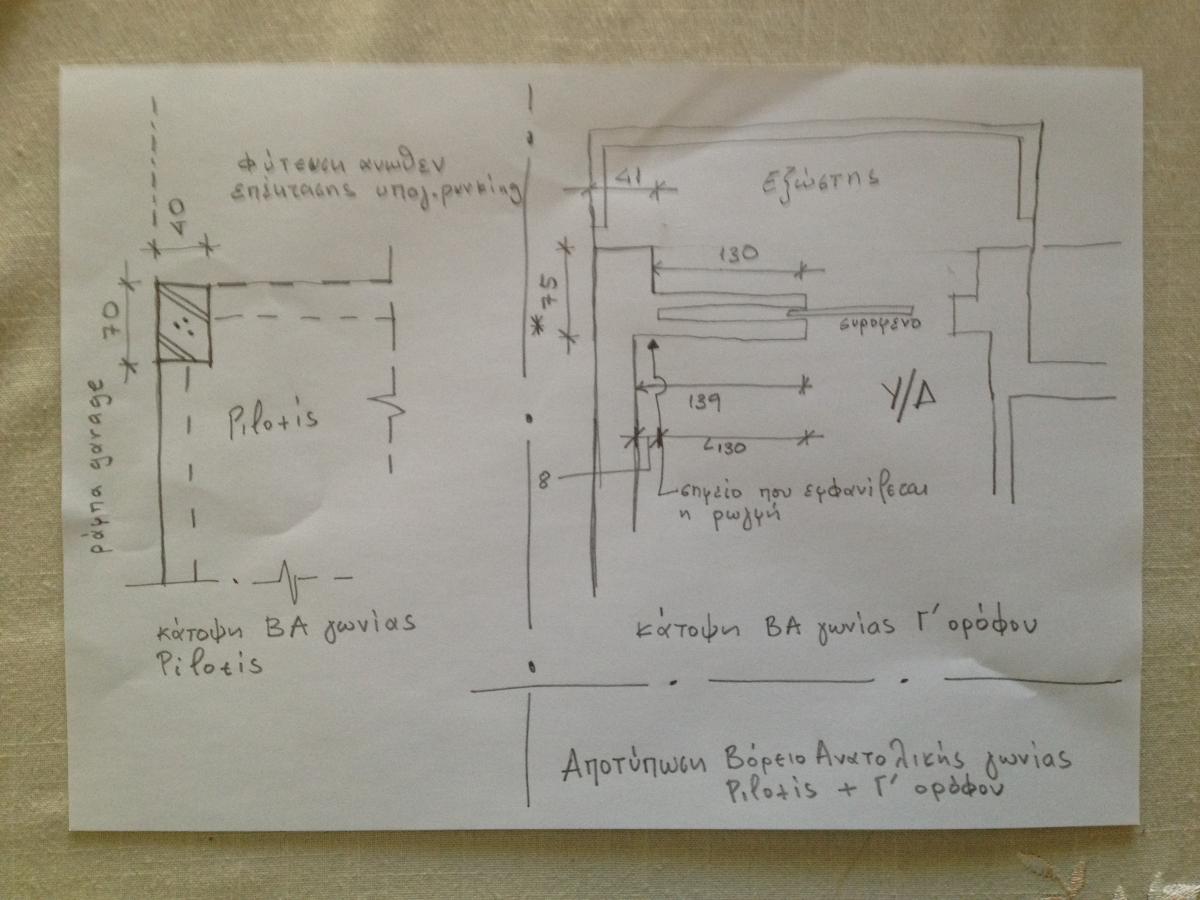 φύτευση άνωθεν
επέκτασης υπογ. parking
40
70
ράμπα garage
Pilotis
κάτοψη ΒΑ γωνίας
Pilotis
41
Εξώστης
130
* 75
συρομενο
139
Υ/Δ
∠130
8
σημείο που εμφανίζεται
η ρωγμή
κάτοψη ΒΑ γωνίας Γ' ορόφου
Αποτύπωση Βόρειο Ανατολικής γωνίας
Pilotis + Γ' ορόφου